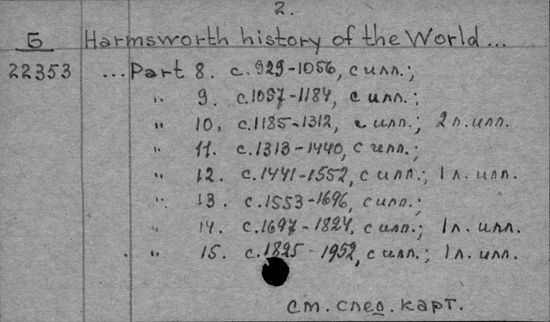 2.
Б Harmsworth history of the World...
22353 ...Part 8. с.929-1056, с илл.;
" 9. с.1057-1184, с илл.;
" 10. с.1185-1312, с илл.; 2 л. илл.
" 11. с.1313-1440, с илл.;
" 12. с.1441-1552, с илл.; 1 л. илл.
" 13. с.1553-1696, с илл.;
" 14. с.1697-1824, с илл.; 1 л. илл.
" 15. с.1825-1952, с илл.; 1 л. илл.
см. след. карт.